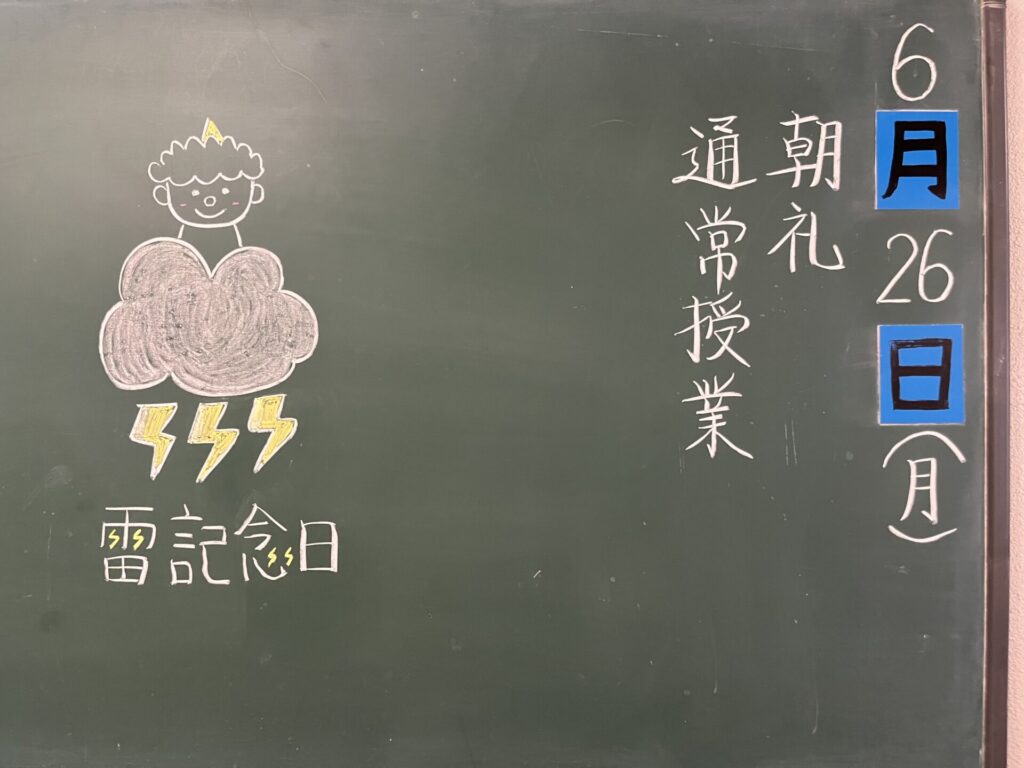 6月26日(月)
朝礼
通常授業
雷記念日